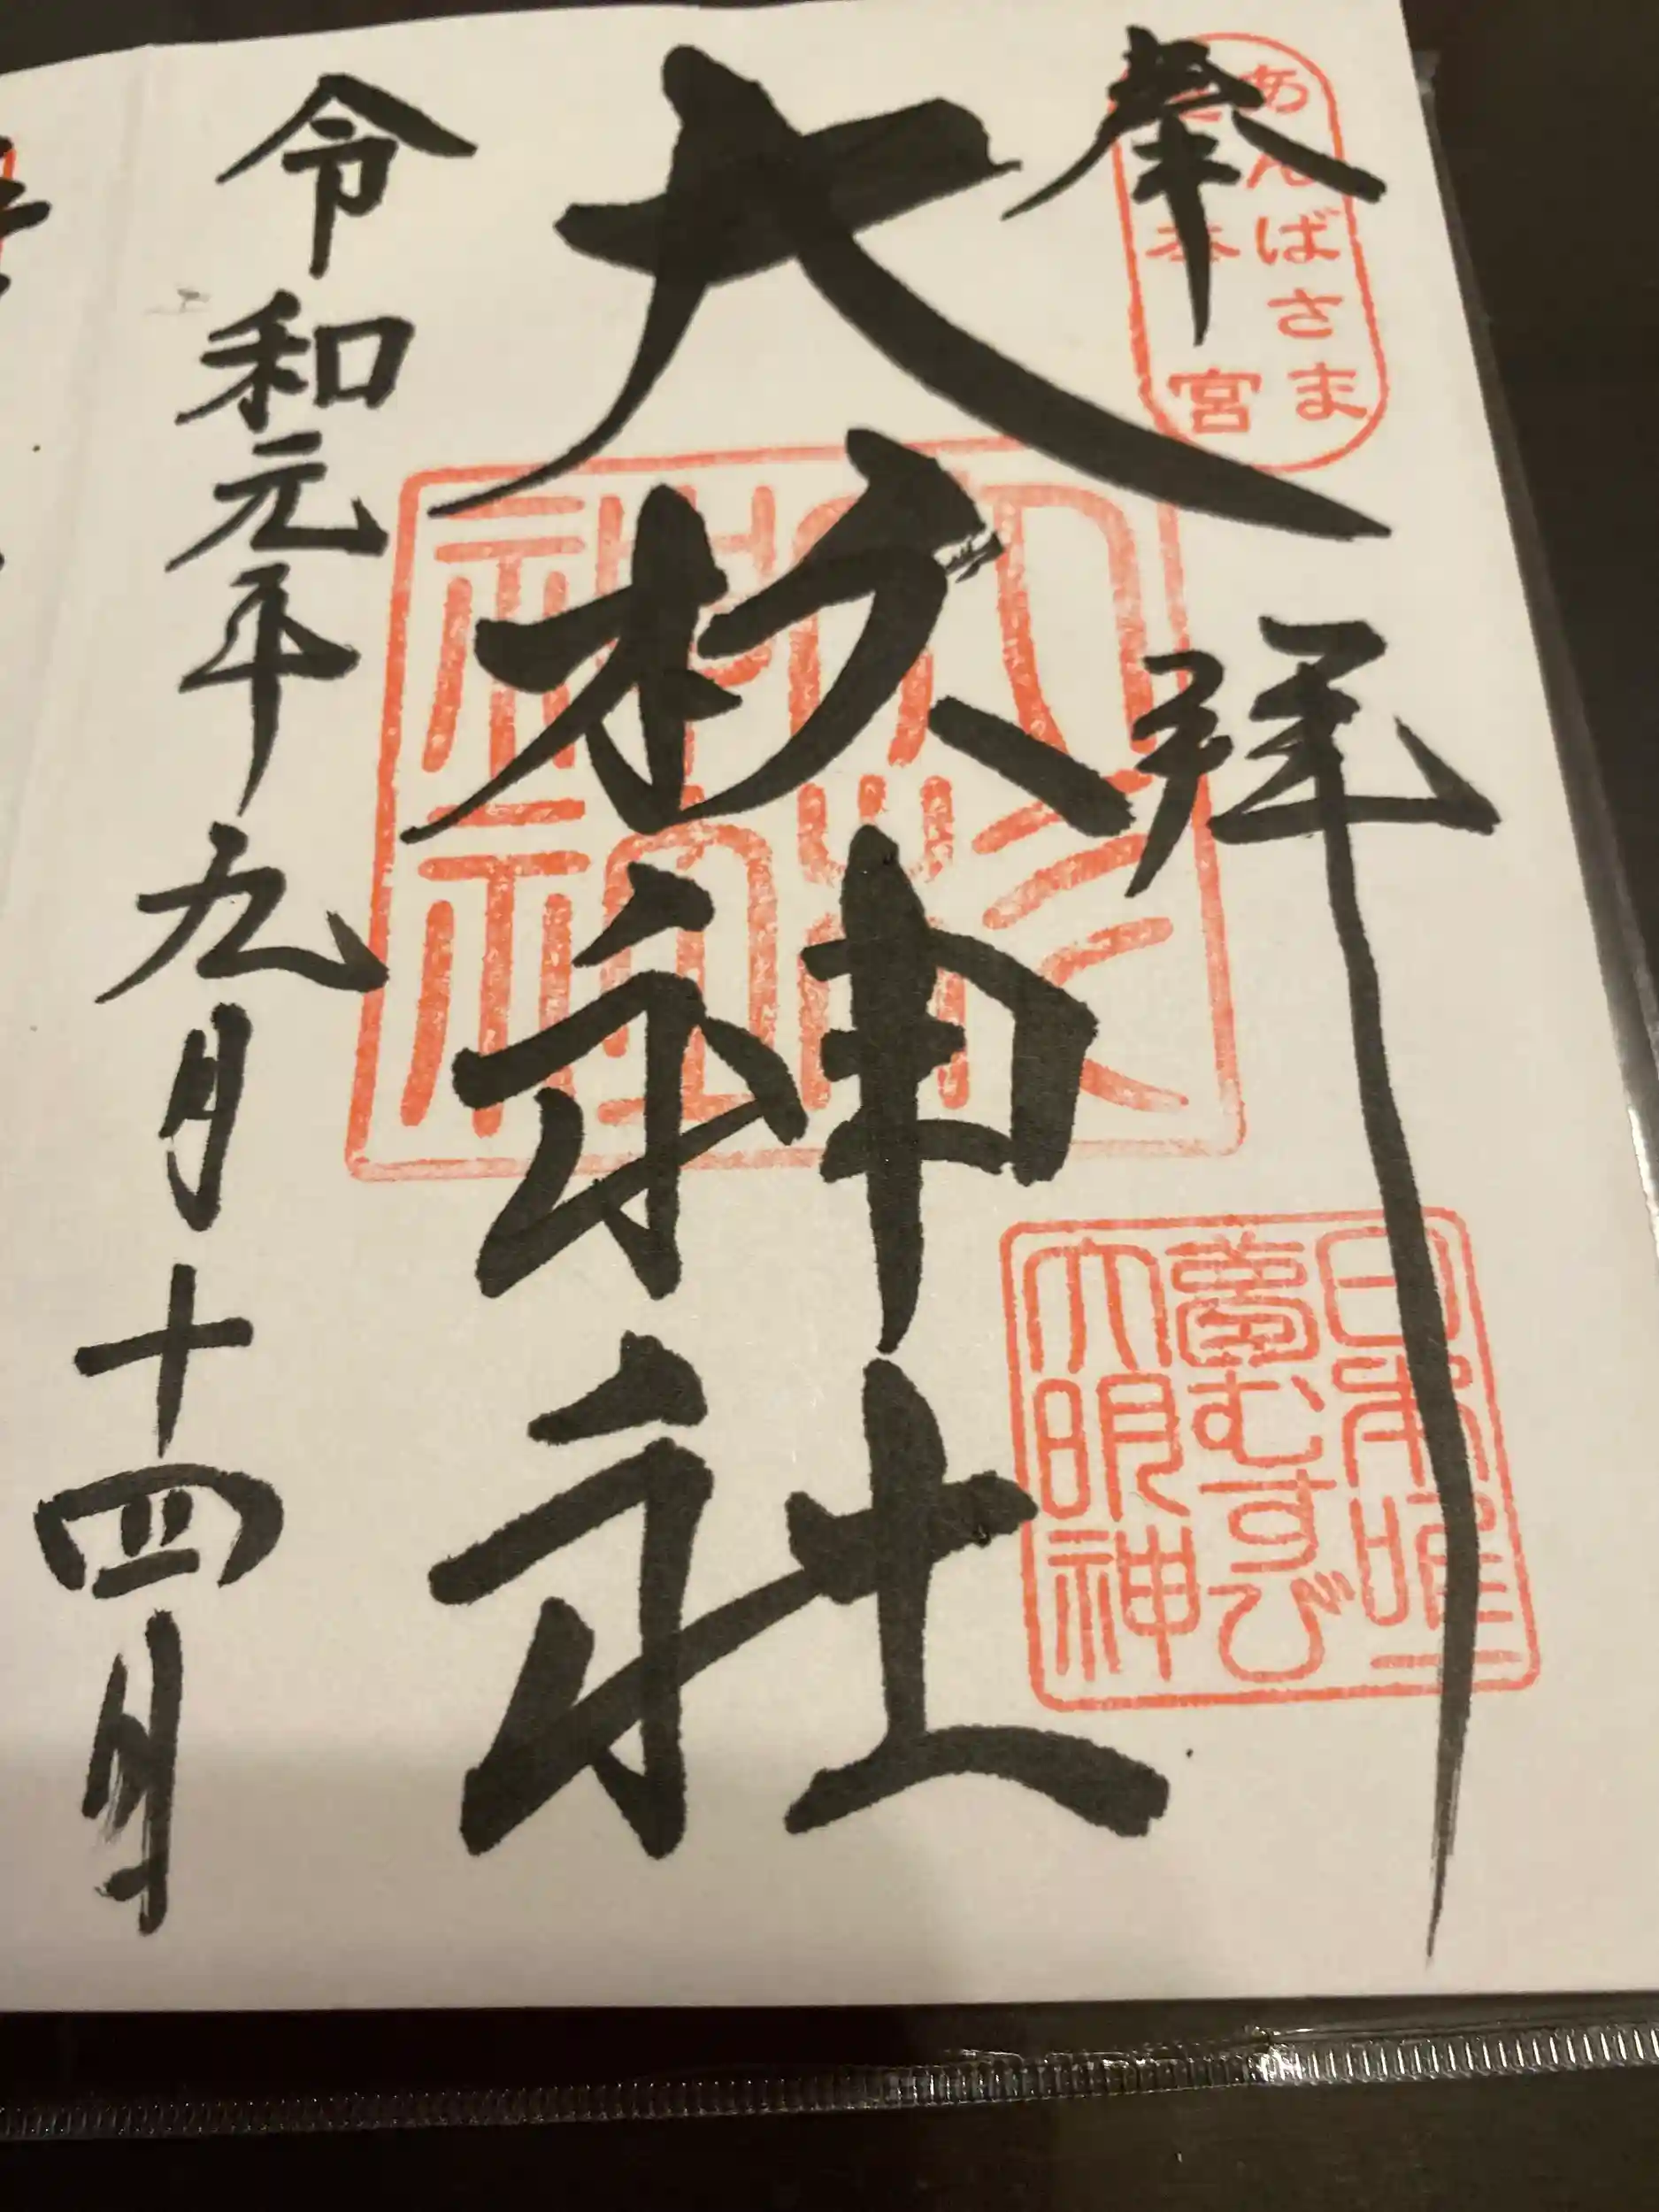 奉拝
あんばさま
総本宮
大杦神社
大杉
神社
日本唯一
夢むすび
大明神
令和元年九月十四日